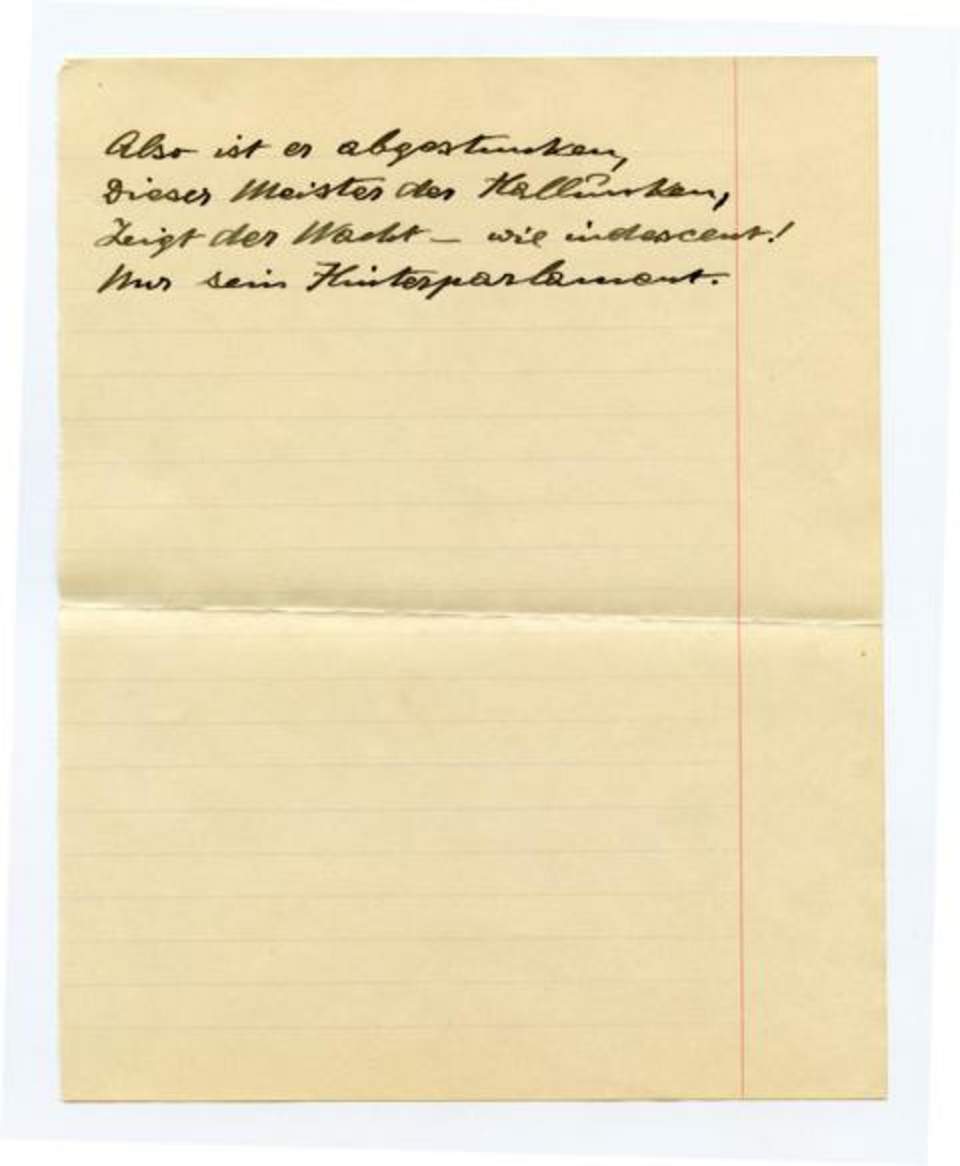 Also ist er abgestunken,
Dieser Meister der Hallunken,
Zeigt der Wacht – wie indescent!
Nur sein Hinterparlament.